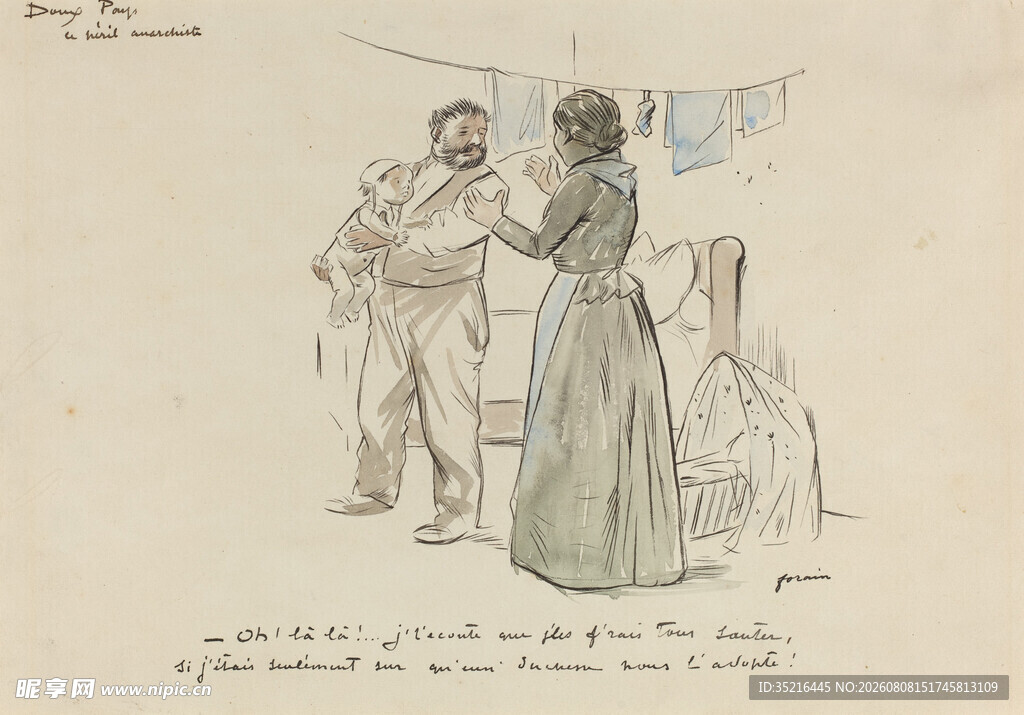 Doux Pays
le péril anarchiste
forain
— Oh! là là!... j't'écoute que j'les f'rais tous sauter,
si j'étais seulement sur qu'eun' duchesse nous l'adopte!
昵享网 www.nipic.cn
ID:35216445 NO:20260808151745813109